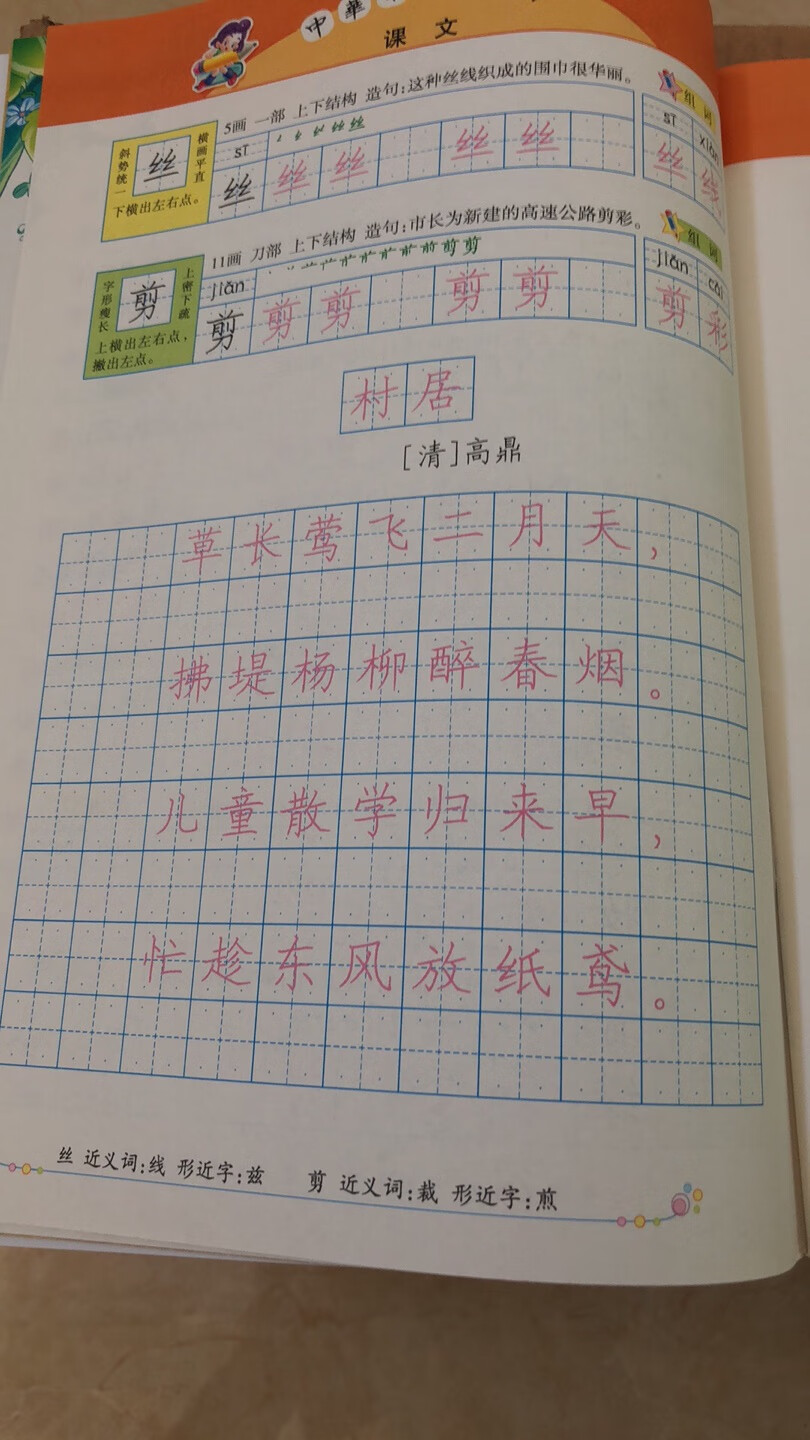 中華
课文
5画 一部 上下结构 造句:这种丝线织成的围巾很华丽。
组词
斜势统一
丝
横画平直
下横出左右点。
sī
丝 丝 丝 丝 丝
sī xiàn
丝线
11画 刀部 上下结构 造句:市长为新建的高速公路剪彩。
组词
字形瘦长
剪
上密下疏
上横出左右点,
撇出左点。
jiǎn
剪 剪 剪 剪 剪
jiǎn cǎi
剪彩
村居
[清]高鼎
草长莺飞二月天,
拂堤杨柳醉春烟。
儿童散学归来早,
忙趁东风放纸鸢。
丝 近义词:线 形近字:兹 剪 近义词:裁 形近字:煎